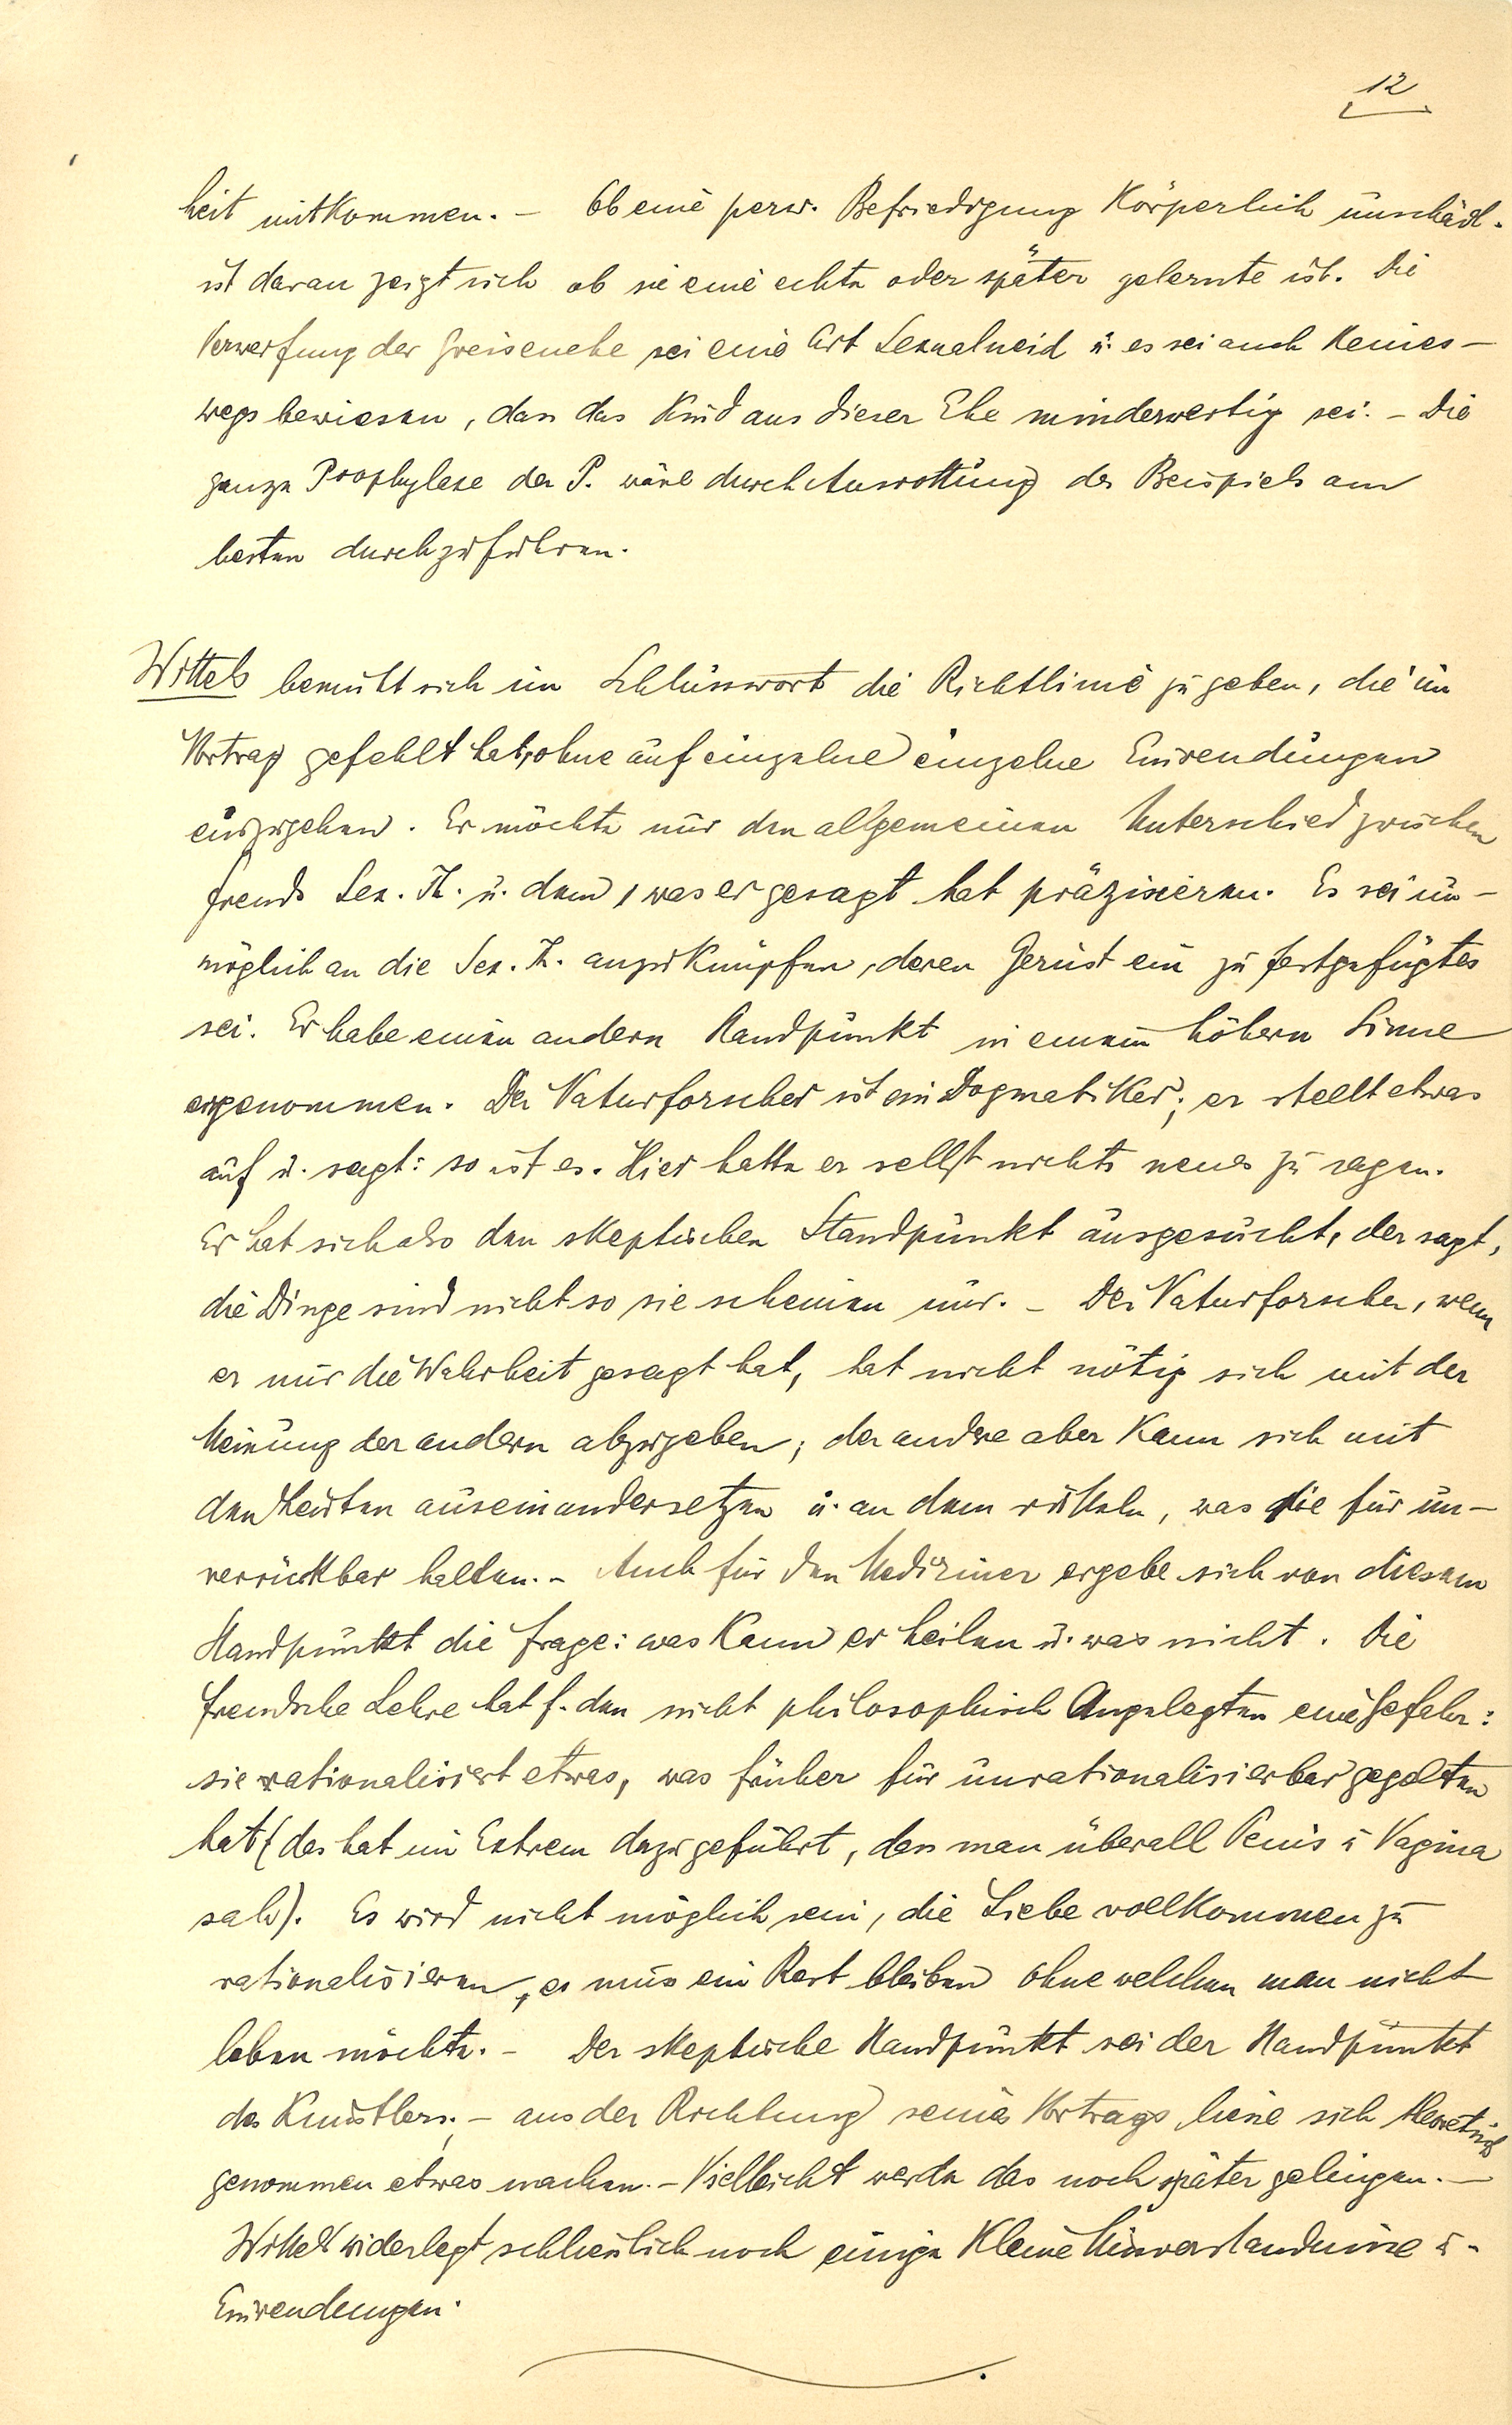 12
heit mitkommen. – Ob eine perv. Befriedigung körperlich unschädl.
ist daran zeigt sich ob sie eine echte oder später gelernte ist. Die
Verwerfung der Greisenehe sei eine Art Sexualneid u. es sei auch keines-
wegs bewiesen, dass das Kind aus dieser Ehe minderwertig sei. – Die
ganze Prophylaxe der P. wäre durch Ausrottung des Beispiels am
besten durchzuführen.
Wittels bemüht sich im Schlusswort die Richtlinie zu geben, die im
Vortrag gefehlt hat, ohne auf einzelne einzelne Einwendungen
einzugehen. Er möchte nur den allgemeinen Unterschied zwischen
Freuds Sex. Th. u. dem, was er gesagt hat präzisieren. Es sei un-
möglich an die Sex. Th. anzuknüpfen, deren Gerüst ein zu festgefügtes
sei. Er habe einen andern Standpunkt in einem höhern Sinne
eingenommen. Der Naturforscher ist ein Dogmatiker; er stellt etwas
auf u. sagt: so ist es. Hier hatte er selbst nichts neues zu sagen.
Er hat sich also den skeptischen Standpunkt ausgesucht, der sagt,
die Dinge sind nicht so sie scheinen nur. – Der Naturforscher, wenn
er nur die Wahrheit gesagt hat, hat nicht nötig sich mit der
Meinung der andern abzugeben; der andre aber kann sich mit
den Leuten auseinandersetzen u. an dem rütteln, was die für un-
verrückbar halten. – Auch für den Mediziner ergebe sich von diesem
Standpunkt die Frage: was kann er heilen u. was nicht. Die
Freudsche Lehre hat f. den nicht philosophisch Angelegten eine Gefahr:
sie rationalisiert etwas, was früher für unrationalisierbar gegolten
hat (das hat im Extrem dazu geführt, dass man überall Penis u Vagina
sah). Es wird nicht möglich sein, die Liebe vollkommen zu
rationalisieren, es muss ein Rest bleiben ohne welchen man nicht
leben möchte. – Der skeptische Standpunkt sei der Standpunkt
des Künstlers; – aus der Richtung seines Vortrags liesse sich theoretisch
genommen etwas machen. – Vielleicht werde das noch später gelingen. –
Wittels widerlegt schliesslich noch einige kleine Missverständnisse u.
Einwendungen.